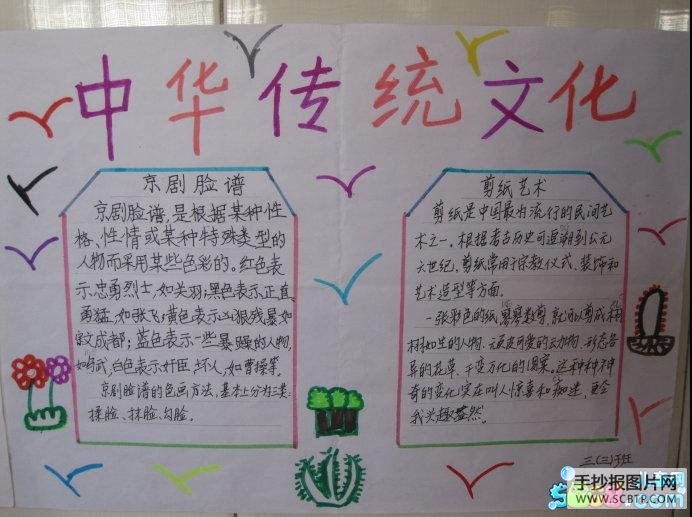 中华传统文化
京剧脸谱
京剧脸谱,是根据某种性
格、性情或某种特殊类型的
人物而采用某些色彩的。红色表
示忠勇烈士,如关羽;黑色表示正直、
勇猛,如张飞;黄色表示凶狠残暴如
宇文成都;蓝色表示一些暴躁的人物,
白色表示奸臣、坏人,如曹操等。
京剧脸谱的色画方法,基本上分为三类:
揉脸、抹脸、勾脸。
剪纸艺术
剪纸是中国最为流行的民间艺
术之一,根据考古历史可追朔到公元
六世纪,剪纸常用于宗教仪式、装饰和
艺术造型等方面。
一张彩色的纸,寥寥数剪,就可以剪成栩
栩如生的人物、活泼可爱的动物、形态各
异的花草、千变万化的图案。这种种神
奇的变化实在叫人惊喜和痴迷,更令
我兴趣盎然。
三(三)班
手抄报图片网
www.SCBTP.COM